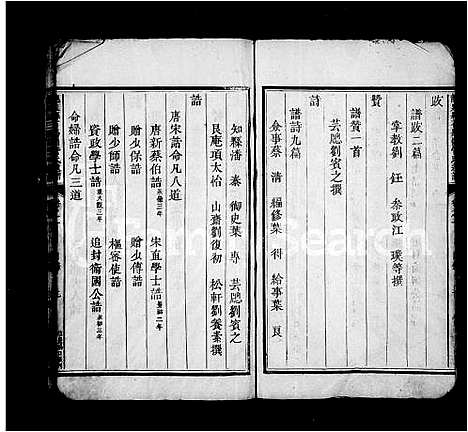 跋
譜跋二篇
掌教劉鈺 參政江 璞等撰
贊
譜贊一首
芸牕劉賓之撰
詩
譜詩九篇
僉事蔡 清 編修葉 給事葉 良
知縣潘 泰 御史葉 專 芸牕劉賓之
艮庵項太怡 山齋劉復初 松軒劉養素撰
誥
唐宋誥命凡八道
唐新蔡伯誥 三年 宋直學士誥 二年
贈少保誥 贈少傅誥
贈少師誥 樞密使誥
資政學士誥 三年 追封衛國公誥 三年
命婦誥命凡三道